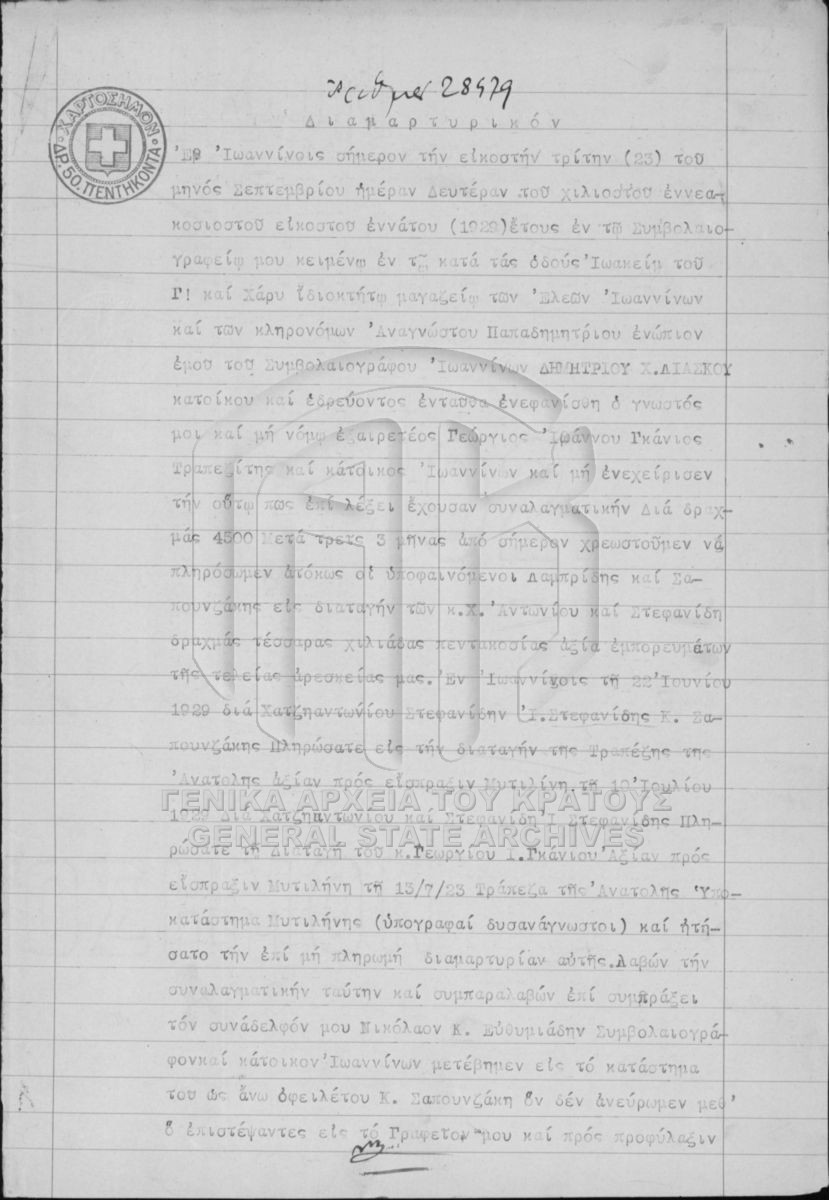 Αριθμος 28479
Διαμαρτυρικόν
ΧΑΡΤΟΣΗΜΟΝ ΔΡ. 50. ΠΕΝΤΗΚΟΝΤΑ
Ἐν Ἰωαννίνοις σήμερον τήν εἰκοστήν τρίτην (23) τοῦ
μηνός Σεπτεμβρίου ἡμέραν Δευτέραν τοῦ χιλιοστοῦ ἐννεα-
κοσιοστοῦ εἰκοστοῦ ἐννάτου (1929) ἔτους ἐν τῶ Συμβολαιο-
γραφείῳ μου κειμένῳ ἐν τῷ κατά τάς ὁδούς Ἰωακείμ τοῦ
Γ! καί Χάρυ ἰδιοκτήτῳ μαγαζείῳ τῶν Ἐλεῶν Ἰωαννίνων
καί των κληρονόμων Ἀναγνώστου Παπαδημητρίου ἐνώπιον
ἐμοῦ τοῦ Συμβολαιογράφου Ἰωαννίνων ΔΗΜΗΤΡΙΟΥ Χ.ΛΙΑΣΚΟΥ
κατοίκου καί ἑδρεύοντος ἐνταῦθα ἐνεφανίσθη ὁ γνωστός
μοι καί μή νόμῳ ἐξαιρετέος Γεώργιος Ἰωάννου Γκάνιος
Τραπεζίτης καί κάτοικος Ἰωαννίνων καί μή ἐνεχείρισεν
τήν οὕτω πως ἐπί λέξει ἔχουσαν συναλαγματικήν Διά δραχ-
μάς 4500 Μετά τρεις 3 μῆνας ἀπό σήμερον χρεωστοῦμεν νά
πληρόσωμεν ἀτόκως οἱ ὑποφαινόμενοι Λαμπρίδης καί Σα-
πουνζάκης εἰς διαταγήν τῶν κ.Χ. Ἀντωνίου καί Στεφανίδη
δραχμάς τέσσαρας χιλιάδας πεντακοσίας ἀξία ἐμπορευμάτων
τῆς τελείας ἀρεσκείας μας. Ἐν Ἰωαννίνοις τῆ 22 Ἰουνίου
1929 διά Χατζηαντωνίου Στεφανίδην Ἰ.Στεφανίδης Κ. Σα-
πουνζάκης Πληρώσατε εἰς τήν διαταγήν τῆς Τραπέζης της
Ἀνατολης ἀξίαν πρός εἴσπραξιν Μυτιλίνη τῆ 10 Ἰουλίου
1929 Διά Χατζηαντωνίου καί Στεφανίδη Ἰ Στεφανίδης Πλη-
ρώσατε τῆ Διαταγῆ τοῦ κ.Γεωργίου Ι.Γκάνιου Ἀξίαν πρός
εἴσπραξιν Μυτιλήνη τῆ 13/7/23 Τράπεζα τῆς Ἀνατολῆς Ὑπο-
κατάστημα Μυτιλήνης (ὑπογραφαί δυσανάγνωστοι) καί ἠτή-
σατο τήν ἐπί μή πληρωμή διαμαρτυρίαν αὐτῆς.Λαβών τήν
συναλαγματικήν ταύτην καί συμπαραλαβών ἐπί συμπράξει
τόν συνάδελφόν μου Νικόλαον Κ. Εὐθυμιάδην Συμβολαιογρά-
φονκαί κάτοικον Ἰωαννίνων μετέβημεν εἰς τό κατάστημα
του ὡς ἄνω ὀφειλέτου Κ. Σαπουνζάκη ὅν δέν ἀνεύρωμεν μεθ'
ὅ ἐπιστέψαντες εἰς τό Γραφεῖον μου καί πρός προφύλαξιν
ΓΕΝΙΚΑ ΑΡΧΕΙΑ ΤΟΥ ΚΡΑΤΟΥΣ
GENERAL STATE ARCHIVES